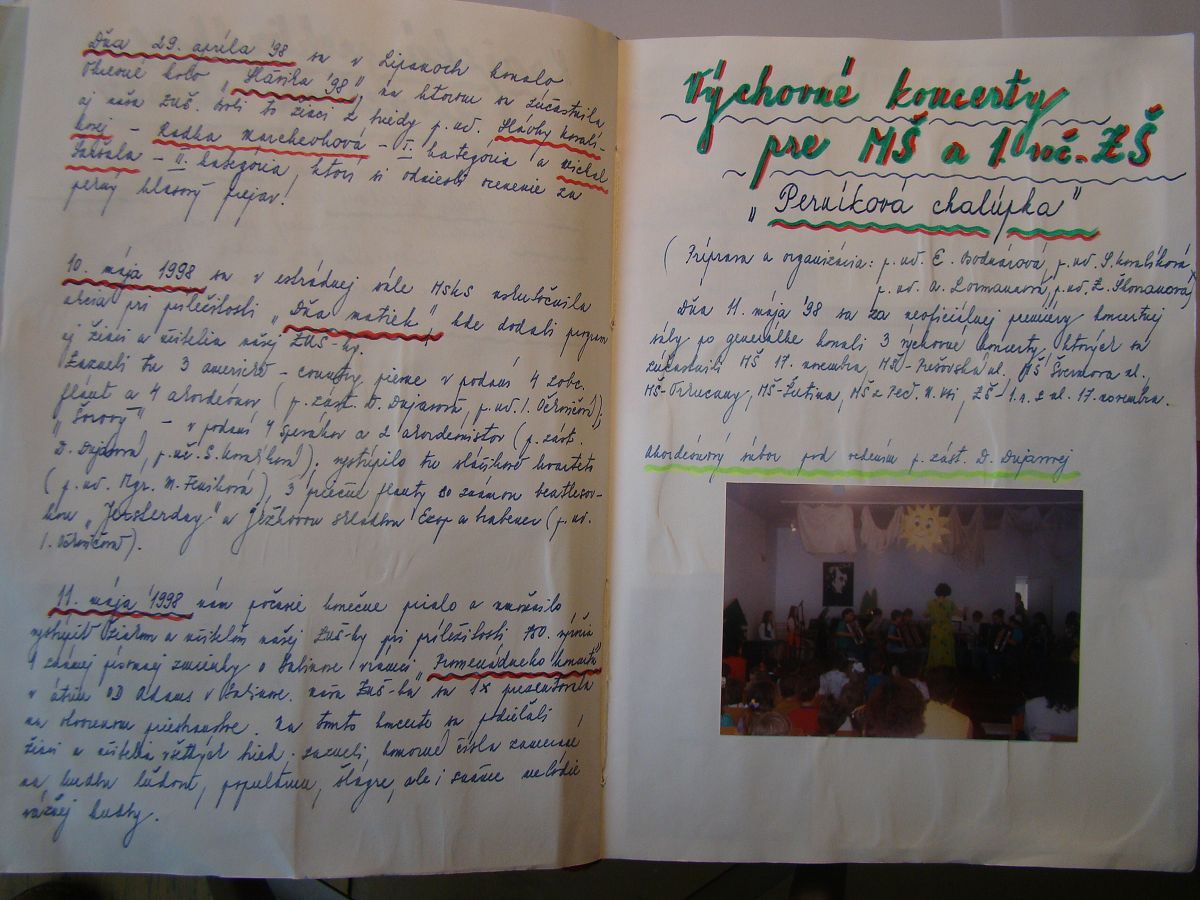 Dňa 29. apríla '98 sa v Lipanoch konalo
Okresné kolo „Slávika '98" na ktorom sa zúčastnila
aj naša ZUŠ. Boli to žiaci z triedy p. uč. Slávky Kovalí-
kovej – Radka Marchevková – I. kategória a Michal
Sabala – II. kategória, ktorí si odniesli ocenenie za
pekný hlasový prejav!
10. mája 1998 sa v estrádnej sále MsKS uskutočnila
akcia pri príležitosti „Dňa matiek" kde dodali program
aj žiaci a učitelia našej ZUŠ-ky.
Zazneli tu 3 americké – country piesne v podaní 4 zobc.
flaut a 4 akordeónov (p. zást. D. Dujavová, p. uč. I. Očkovičová);
– v podaní 4 spevákov a 2 akordeonistov (p. zást.
D. Dujavová, p. uč. S. Kovalíková); vystúpilo tu sláčikové kvarteto
(p. uč. Mgr. M. ), 3 priečne flauty so známou beatlesov-
kou „Jersterday" a Ježkovou skladbou Ezop a brabenec (p. uč.
I. Očkovičová).
11. mája 1998 nám počasie konečne prialo a umožnilo
vystúpiť žiakom a učiteľom našej ZUŠ-ky pri príležitosti 750. výročia
1 známej písomnej zmienky o Sabinove v rámci „Promenádneho koncertu"
v átriu OD Adams v Sabinove. Naša ZUŠ-ka sa 1x prezentovala
na otvorenom priestranstve. Na tomto koncerte sa podieľali
žiaci a učitelia všetkých tried; zazneli komorné čísla zamerané
na hudbu ľudovú, populárnu, šlágre, ale i známe melódie
vážnej hudby.
Výchovné koncerty
pre MŠ a 1. roč. ZŠ
„Perníková chalúpka"
(Príprava a organizácia: p. uč. E. Bodnárová, p. uč. S. Kovalíková,
p. uč. A. Lormanová, p. uč. Z. Škovranová)
Dňa 11. mája '98 sa za neoficiálnej premiéry koncertnej
sály po generálke konali 3 výchovné koncerty, ktorých sa
zúčastnili MŠ 17. novembra, MŠ-Prešovská ul., MŠ Švermova ul.,
MŠ-Ľutina, MŠ z Peč. N. Vsi, ZŠ-1.r. z ul. 17. novembra.
Akordeónový súbor pod vedením p. zást. D. Dujavovej